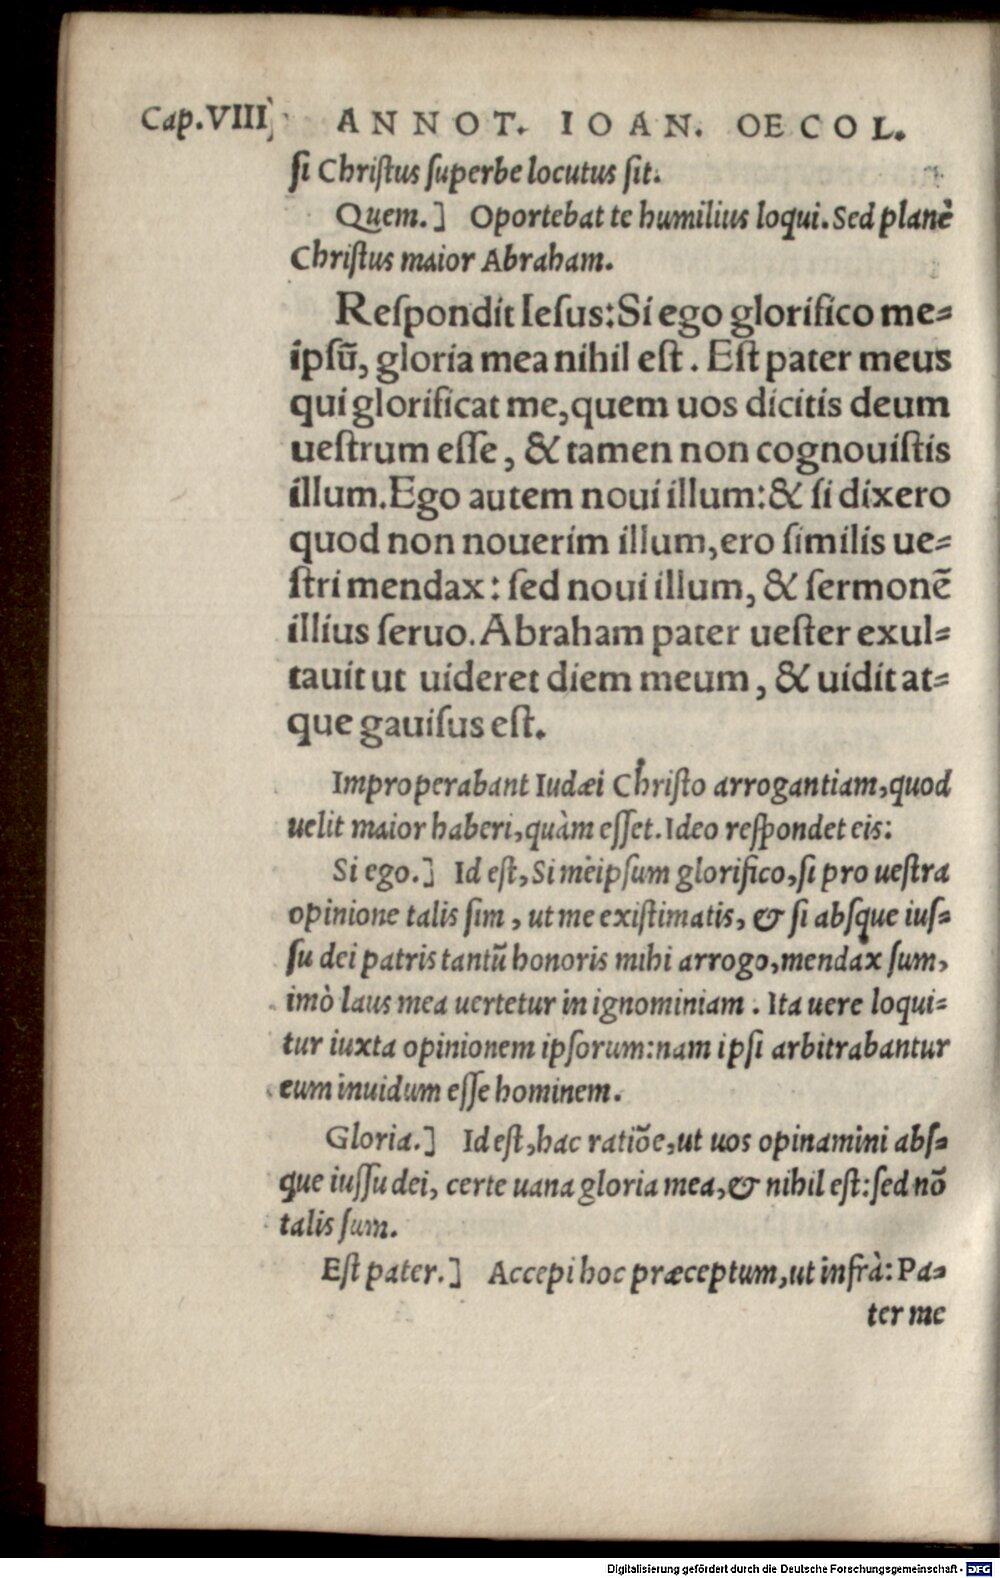 Cap. VIII ANNOT. IOAN. OECOL.
ſi Chriſtus ſuperbe locutus ſit.
Quem.] Oportebat te humilius loqui. Sed planè
Chriſtus maior Abraham.
Reſpondit Ieſus: Si ego glorifico me=
ipſū, gloria mea nihil eſt. Eſt pater meus
qui glorificat me, quem uos dicitis deum
ueſtrum eſſe, & tamen non cognouiſtis
illum. Ego autem noui illum: & ſi dixero
quod non nouerim illum, ero ſimilis ue=
ſtri mendax: ſed noui illum, & ſermonē
illius ſeruo. Abraham pater ueſter exul=
tauit ut uideret diem meum, & uidit at=
que gauiſus eſt.
Improperabant Iudæi Chriſto arrogantiam, quod
uelit maior haberi, quàm eſſet. Ideo reſpondet eis:
Si ego.] Id eſt, Si mèipſum glorifico, ſi pro ueſtra
opinione talis ſim, ut me exiſtimatis, & ſi abſque iuſ=
ſu dei patris tantū honoris mihi arrogo, mendax ſum,
imò laus mea uertetur in ignominiam. Ita uere loqui=
tur iuxta opinionem ipſorum: nam ipſi arbitrabantur
eum inuidum eſſe hominem.
Gloria.] Id eſt, hac ratiōe, ut uos opinamini abſ=
que iuſſu dei, certe uana gloria mea, & nihil eſt: ſed nō
talis ſum.
Eſt pater.] Accepi hoc præceptum, ut infrà: Pa=
ter me
Digitalisierung gefördert durch die Deutsche Forschungsgemeinschaft - DFG